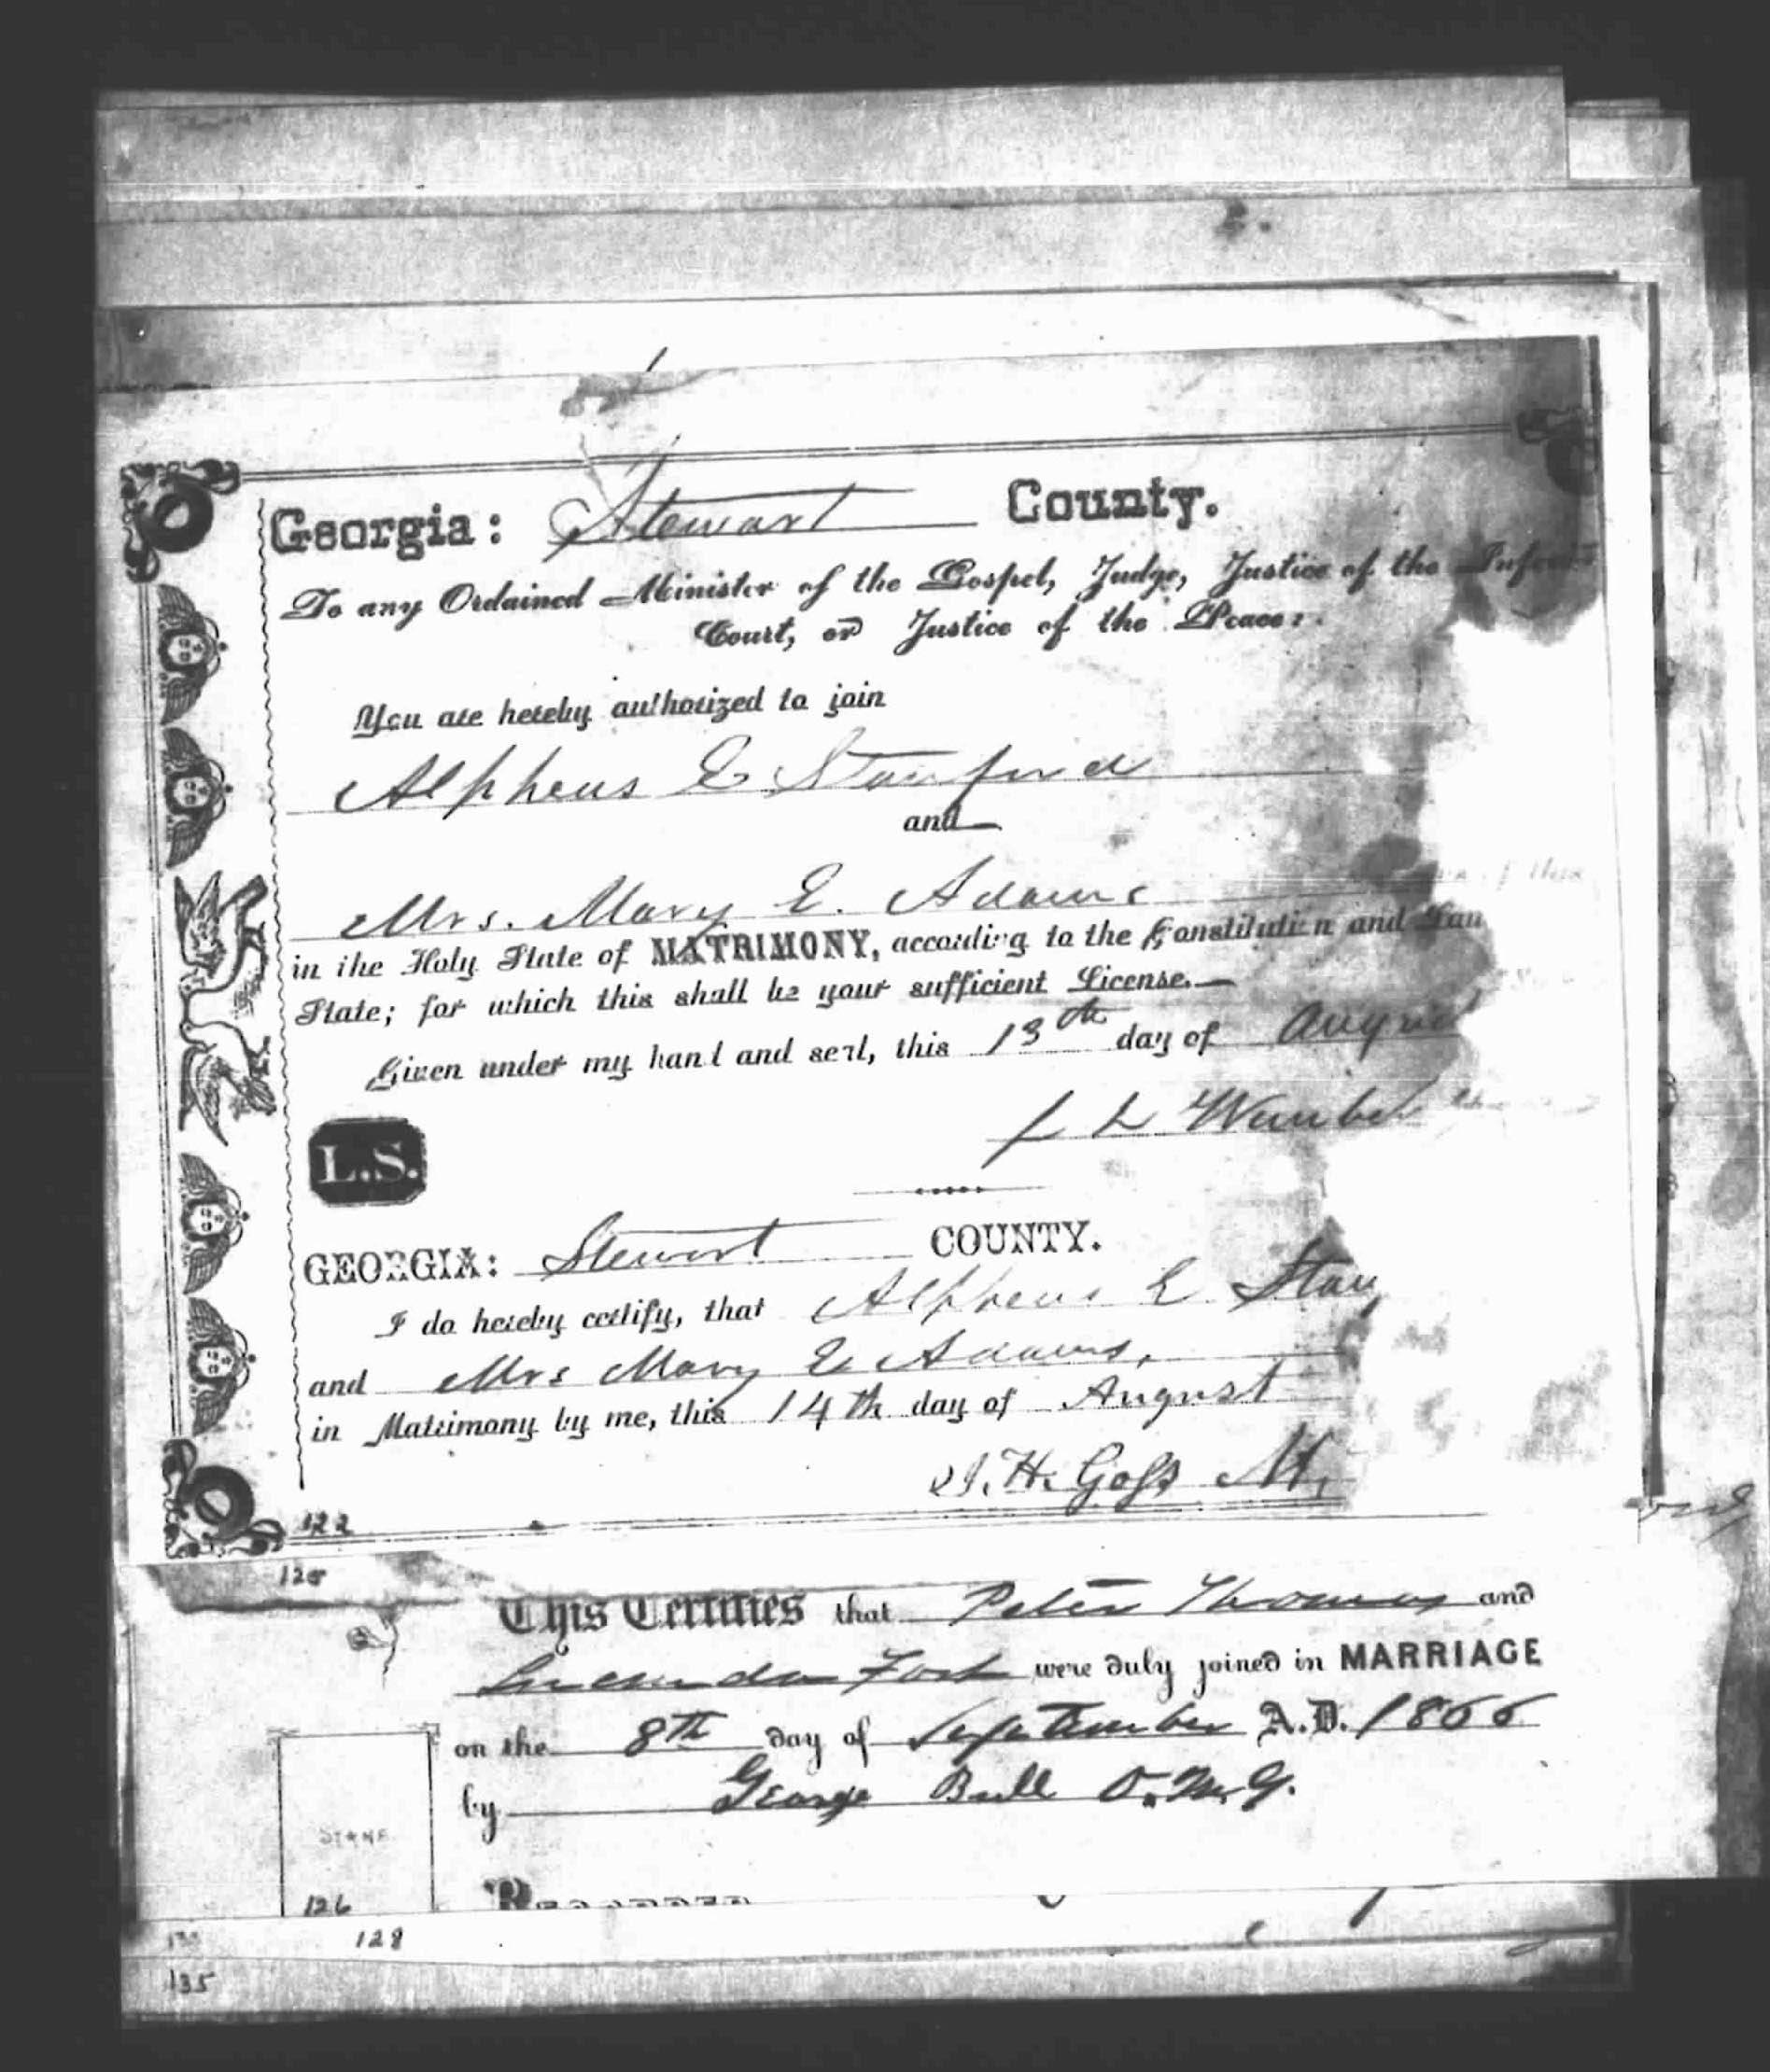 Georgia: Stewart County.
To any Ordained Minister of the Gospel, Judge, Justice of the
Court, or Justice of the Peace:
You are hereby authorized to join
Alpheus E Stanford
and
Mrs. Mary E. Adams
in the Holy State of MATRIMONY, according to the Constitution and
State; for which this shall be your sufficient License.
Given under my hand and seal, this 13th day of August
L.S.
GEORGIA: Stewart COUNTY.
I do hereby certify, that Alpheus E Stan
and Mrs Mary E Adams,
in Matrimony by me, this 14th day of August
H. Goss M.
122
This Certifies that Peter Thomas and
Lucinda were duly joined in MARRIAGE
on the 8th day of September A.D. 1866
by George Bull O.M.G.
STAMP
126
128
135